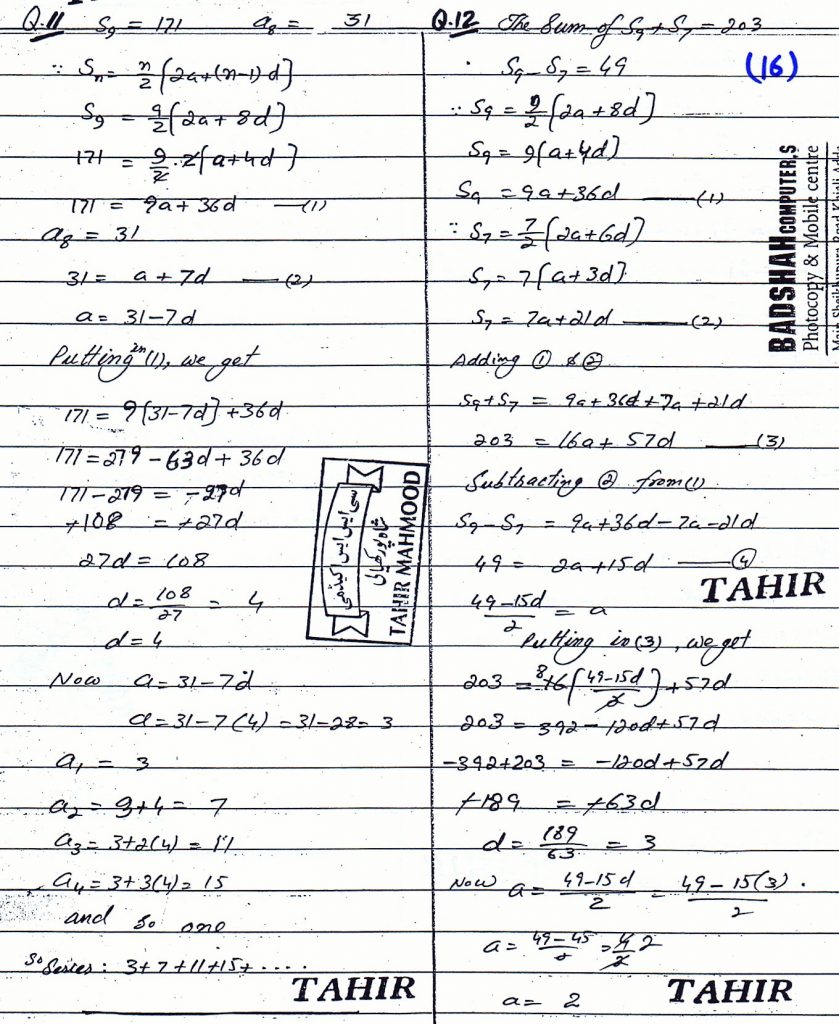 Q.11 S₉ = 171 a₈ = 31
∵ Sₙ = n/2 [2a+(n-1)d]
S₉ = 9/2 [2a + 8d]
171 = 9/2 · 2[a+4d]
171 = 9a + 36d —(1)
a₈ = 31
31 = a + 7d —(2)
a = 31-7d
Putting in (1), we get
171 = 9[31-7d] + 36d
171 = 279 - 63d + 36d
171 - 279 = -27d
+108 = +27d
27d = 108
d = 108/27 = 4
d = 4
Now a = 31-7d
a = 31-7(4) = 31-28 = 3
a₁ = 3
a₂ = 3+4 = 7
a₃ = 3+2(4) = 11
a₄ = 3+3(4) = 15
and so one
So Series: 3+7+11+15+.....
TAHIR
سی ایس ایس اکیڈمی
شاہ پور کھیالی
TAHIR MAHMOOD
Q.12 The Sum of S₉+S₇ = 203
S₉ - S₇ = 49 (16)
∵ S₉ = 9/2 [2a + 8d]
S₉ = 9[a+4d]
S₉ = 9a+36d —(1)
∵ S₇ = 7/2 [2a+6d]
S₇ = 7[a+3d]
S₇ = 7a+21d —(2)
Adding ① & ②
S₉+S₇ = 9a+36d+7a+21d
203 = 16a + 57d —(3)
Subtracting ② from (1)
S₉-S₇ = 9a+36d-7a-21d
49 = 2a+15d —④
TAHIR
49-15d/2 = a
Putting in (3), we get
203 = 16 8 (49-15d/2) + 57d
203 = 392 - 120d + 57d
-392+203 = -120d+57d
+189 = +63d
d = 189/63 = 3
Now a = 49-15d/2 = 49-15(3)/2
a = 49-45/2 = 4/2 2
a = 2
TAHIR
BADSHAH COMPUTER,S
Photocopy & Mobile centre